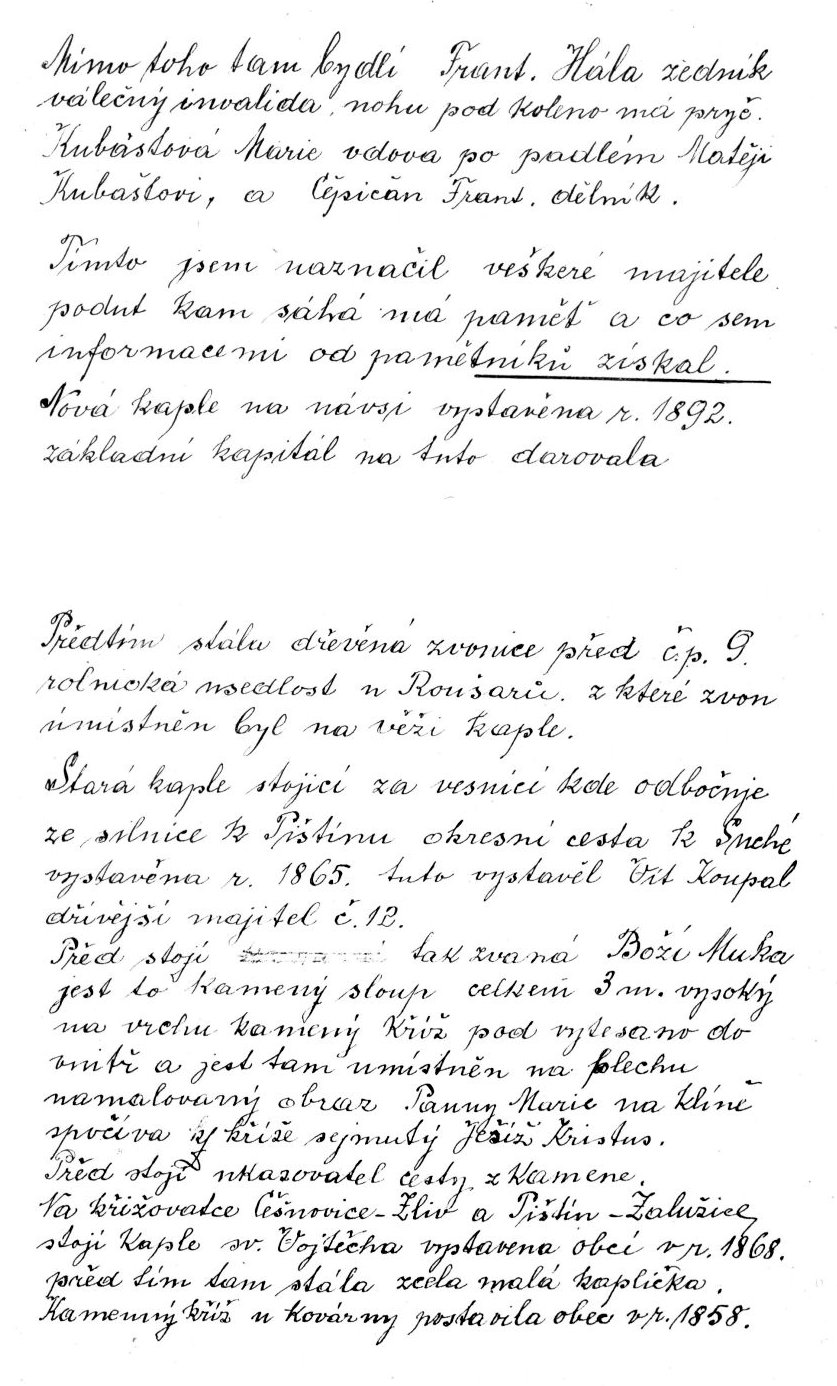 Mimo toho tam bydlí Frant. Hála zedník
válečný invalida, nohu pod koleno má pryč.
Kubáštová Marie vdova po padlém Matěji
Kubaštovi, a Čěpičán Frant. dělník.
Tímto jsem naznačil veškeré majitele
podnt kam sáhá má paměť a co sem
informacemi od pamětníků získal.
Nová kaple na návsi vystavěna r. 1892.
základní kapitál na tuto darovala
Předtím stála dřevěná zvonice před č.p. 9.
rolnická usedlost u Roušarů. z které zvon
úmístněn byl na věži kaple.
Stará kaple stojící za vesnicí kde odbočuje
ze silnice k Pištínu okresní cesta k Suché
vystavěna r. 1865. tuto vystavěl Vít Koupal
dřívější majitel č. 12.
Před stojí tak zvaná Boží Muka
jest to kamený sloup celkem 3 m. vysoký
na vrchu kamený kříž pod vytesano do
vnitř a jest tam umístněn na plechu
namalovaný obraz Panny Marie na klíně
spočíva kříže sejmutý Ježíž Kristus.
Před stojí ukazovatel cesty z kamene.
Na křižovatce Češnovice-Zliv a Pištín-Zalužice
stojí kaple sv. Vojtěcha vystavena obcí v r. 1868.
před tím tam stála zcela malá kaplička.
Kamenný kříž u kovárny postavila obec v r. 1858.